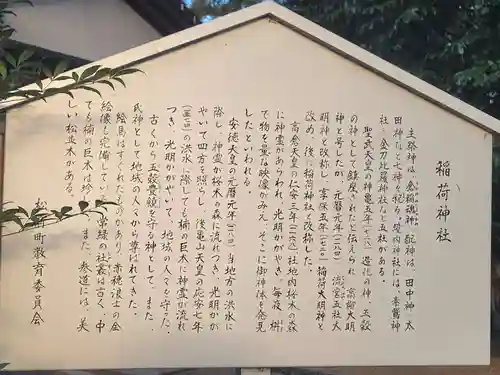 稲荷神社
主祭神は、倉稲魂神、配神は、田中神、太
田神など七神を祀る。境内神社には、素鵞神
社、金刀比羅神社など五社がある。
聖武天皇の神亀五年（七二八）造化の神、五穀
の神として鎮座されたと伝えられ、高樹大明
神と号したが、元暦元年（一一八四）流宮五社大
明神と改称し、享保五年（一七二〇）稲荷大明神と
改め、後に稲荷神社と改称した。
高倉天皇の仁安三年（一一六八）社地内桜木の森
に神霊があらわれ、光明かがやき、毎夜、枡
で物を量る映像がみえ、そこに御神体を発見
したといわれる。
安徳天皇の元暦元年（一一八四）当地方の洪水に
際し、神霊が桜木の森に流れつき、光明かが
やいて四方を照らし、後亀山天皇の応安七年
（一三七四）の洪水に際しても楠の巨木に神霊が流れ
つき、光明かがやいて、地域の人々を守った。
古くから五穀豊穣を守る神として、また、
氏神として地域の人々から尊ばれてきた。
絵馬はすぐれたものがあり、赤穂浪士の全
絵像も完備している。常緑の社叢は古く、中
でも楠の巨木は珍
しい松並木がある。また、参道には、美
町教育委員会